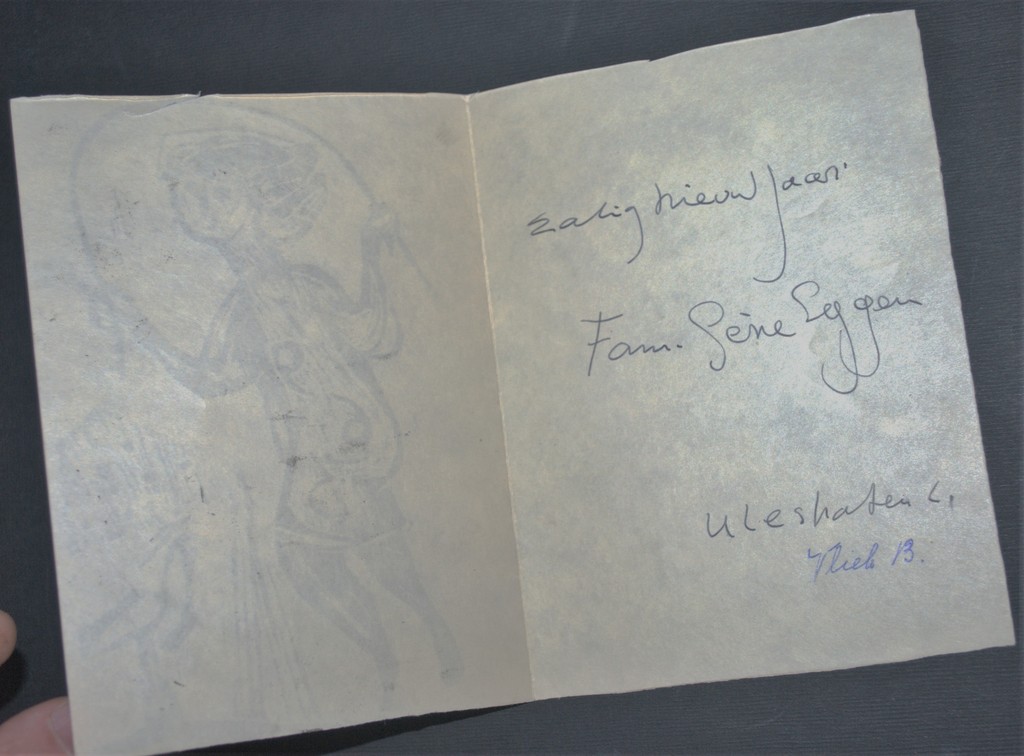 Zalig nieuwjaar
Fam. Gène Eggen
Uleshaten L.
B.